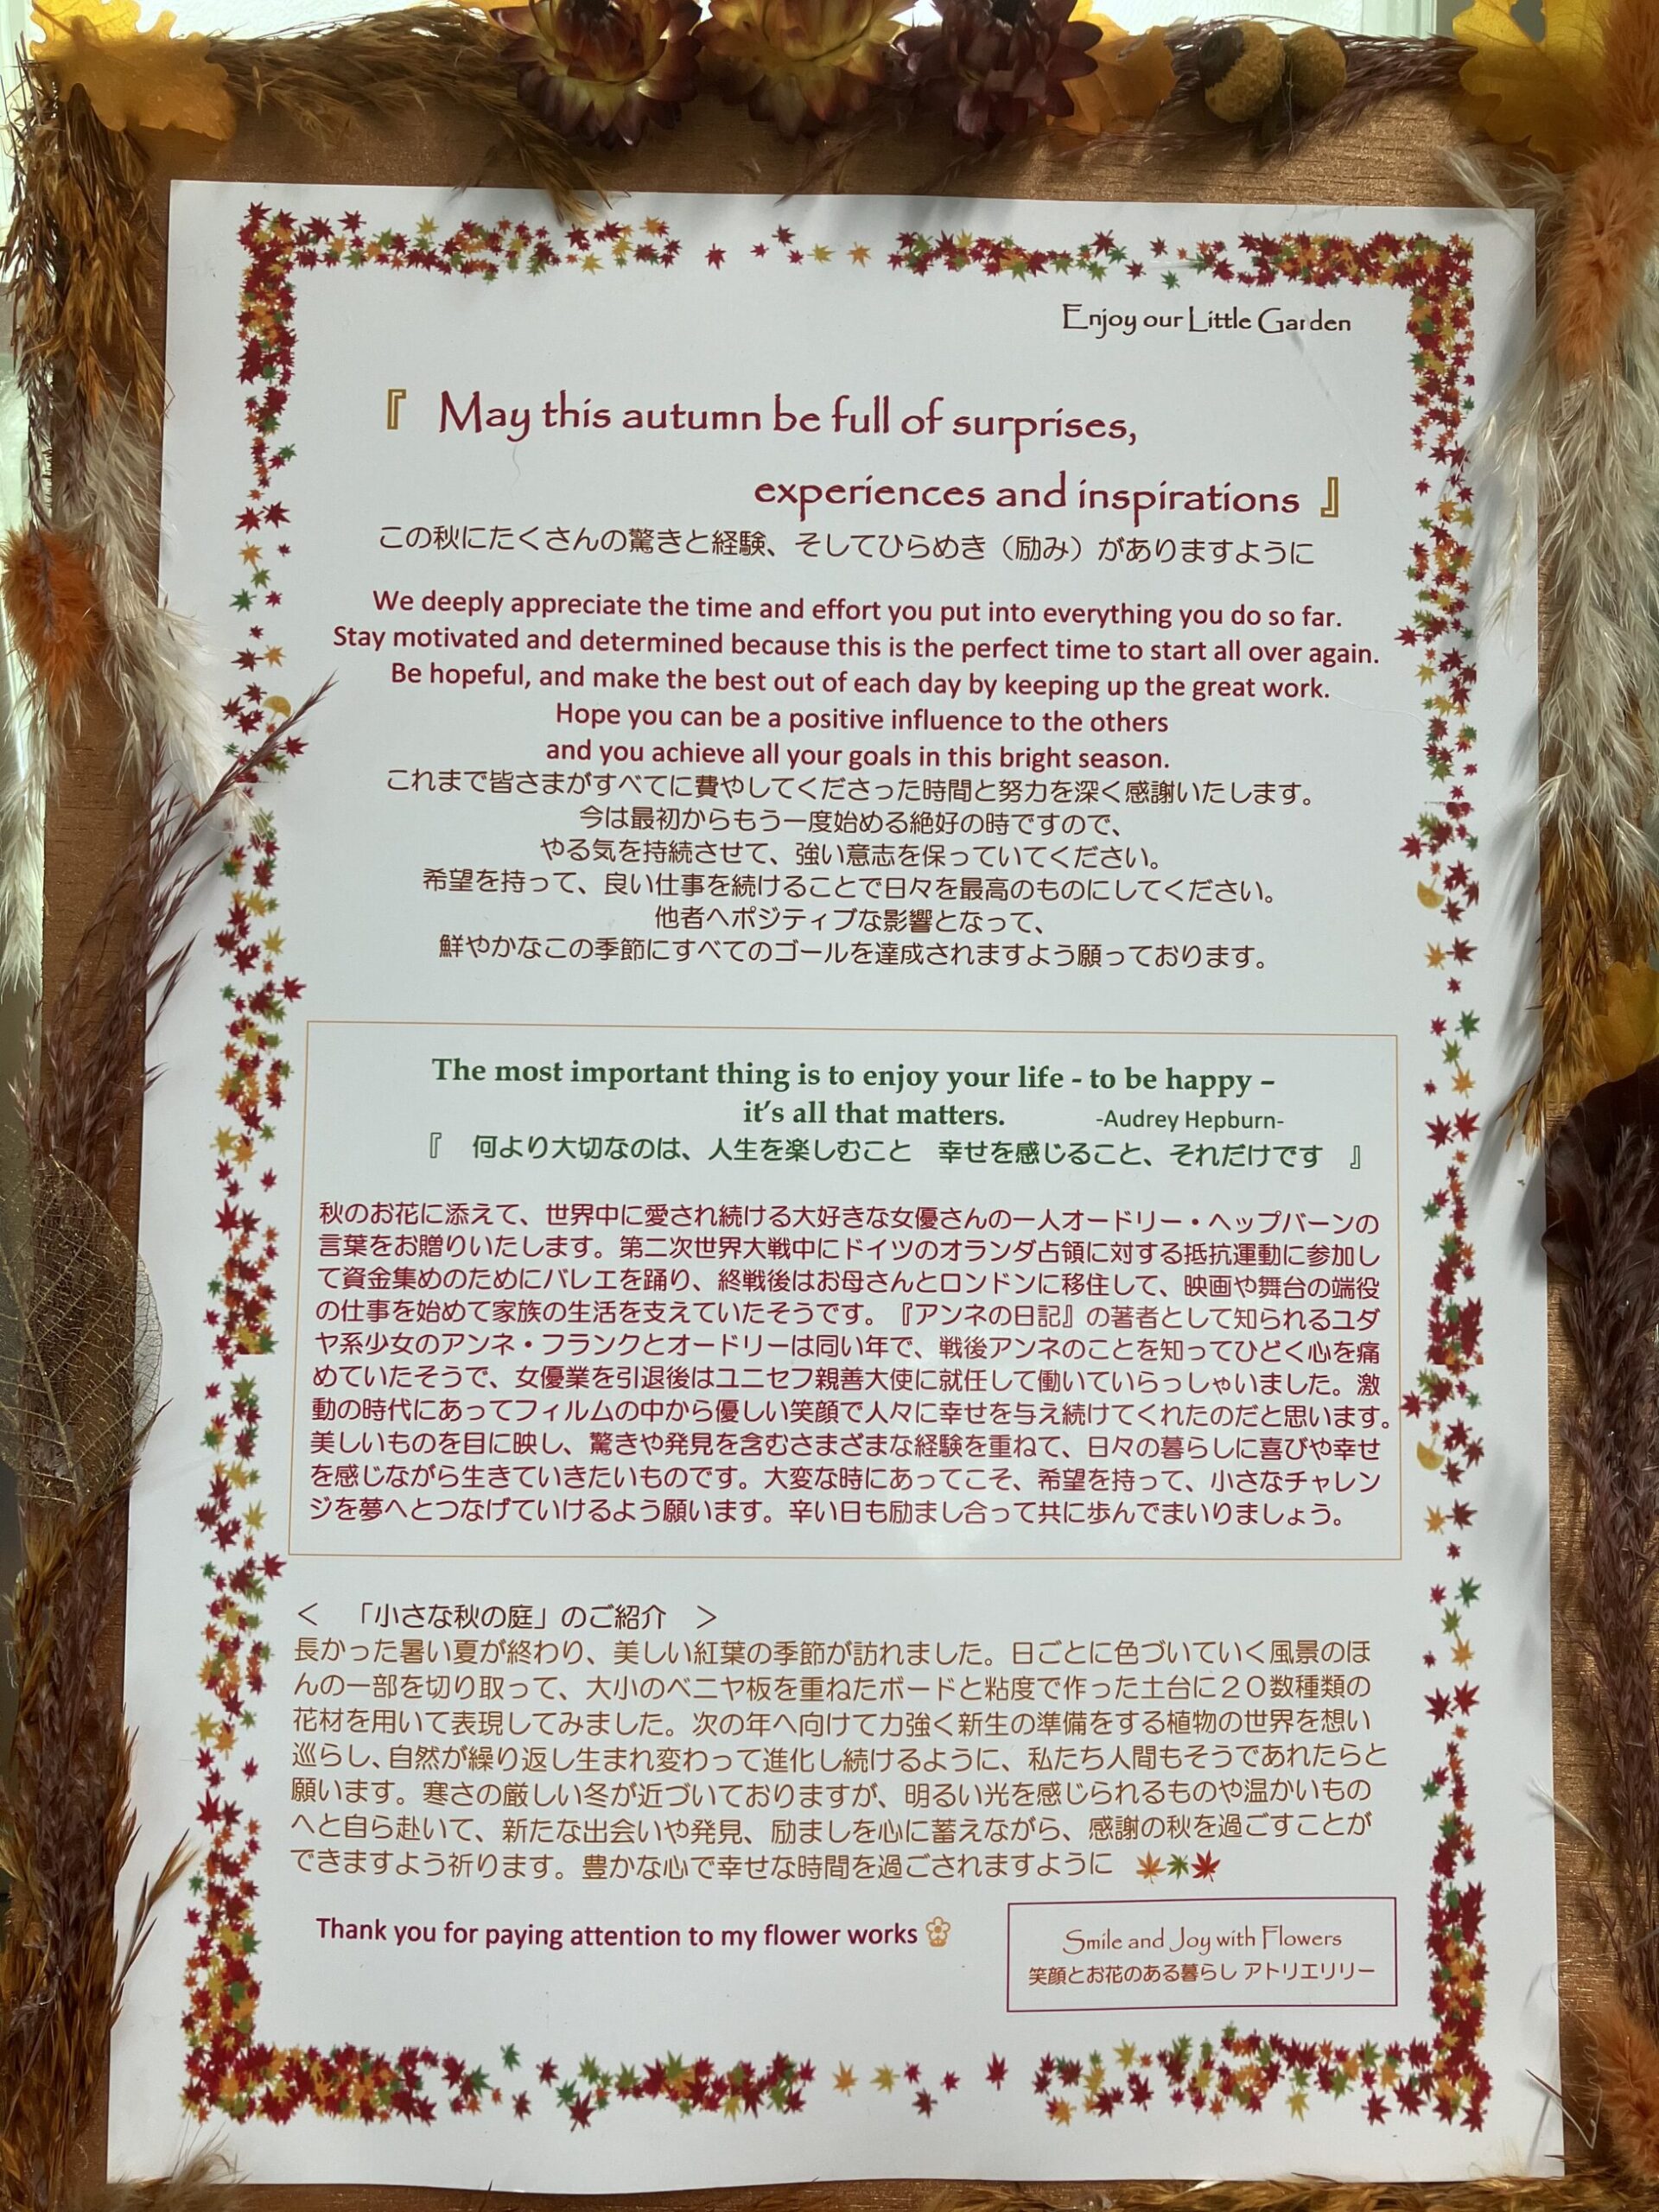 Enjoy our Little Garden
『 May this autumn be full of surprises,
experiences and inspirations 』
この秋にたくさんの驚きと経験、そしてひらめき（励み）がありますように
We deeply appreciate the time and effort you put into everything you do so far.
Stay motivated and determined because this is the perfect time to start all over again.
Be hopeful, and make the best out of each day by keeping up the great work.
Hope you can be a positive influence to the others
and you achieve all your goals in this bright season.
これまで皆さまがすべてに費やしてくださった時間と努力を深く感謝いたします。
今は最初からもう一度始める絶好の時ですので、
やる気を持続させて、強い意志を保っていてください。
希望を持って、良い仕事を続けることで日々を最高のものにしてください。
他者へポジティブな影響となって、
鮮やかなこの季節にすべてのゴールを達成されますよう願っております。
The most important thing is to enjoy your life - to be happy –
it’s all that matters. -Audrey Hepburn-
『　何より大切なのは、人生を楽しむこと　幸せを感じること、それだけです　』
秋のお花に添えて、世界中に愛され続ける大好きな女優さんの一人オードリー・ヘップバーンの
言葉をお贈りいたします。第二次世界大戦中にドイツのオランダ占領に対する抵抗運動に参加し
て資金集めのためにバレエを踊り、終戦後はお母さんとロンドンに移住して、映画や舞台の端役
の仕事を始めて家族の生活を支えていたそうです。『アンネの日記』の著者として知られるユダ
ヤ系少女のアンネ・フランクとオードリーは同い年で、戦後アンネのことを知ってひどく心を痛
めていたそうで、女優業を引退後はユニセフ親善大使に就任して働いていらっしゃいました。激
動の時代にあってフィルムの中から優しい笑顔で人々に幸せを与え続けてくれたのだと思います。
美しいものを目に映し、驚きや発見を含むさまざまな経験を重ねて、日々の暮らしに喜びや幸せ
を感じながら生きていきたいものです。大変な時にあってこそ、希望を持って、小さなチャレン
ジを夢へとつなげていけるよう願います。辛い日も励まし合って共に歩んでまいりましょう。
＜　「小さな秋の庭」のご紹介　＞
長かった暑い夏が終わり、美しい紅葉の季節が訪れました。日ごとに色づいていく風景のほ
んの一部を切り取って、大小のベニヤ板を重ねたボードと粘度で作った土台に２０数種類の
花材を用いて表現してみました。次の年へ向けて力強く新生の準備をする植物の世界を想い
巡らし、自然が繰り返し生まれ変わって進化し続けるように、私たち人間もそうであれたらと
願います。寒さの厳しい冬が近づいておりますが、明るい光を感じられるものや温かいもの
へと自ら赴いて、新たな出会いや発見、励ましを心に蓄えながら、感謝の秋を過ごすことが
できますよう祈ります。豊かな心で幸せな時間を過ごされますように
Thank you for paying attention to my flower works
Smile and Joy with Flowers
笑顔とお花のある暮らし アトリエリリー